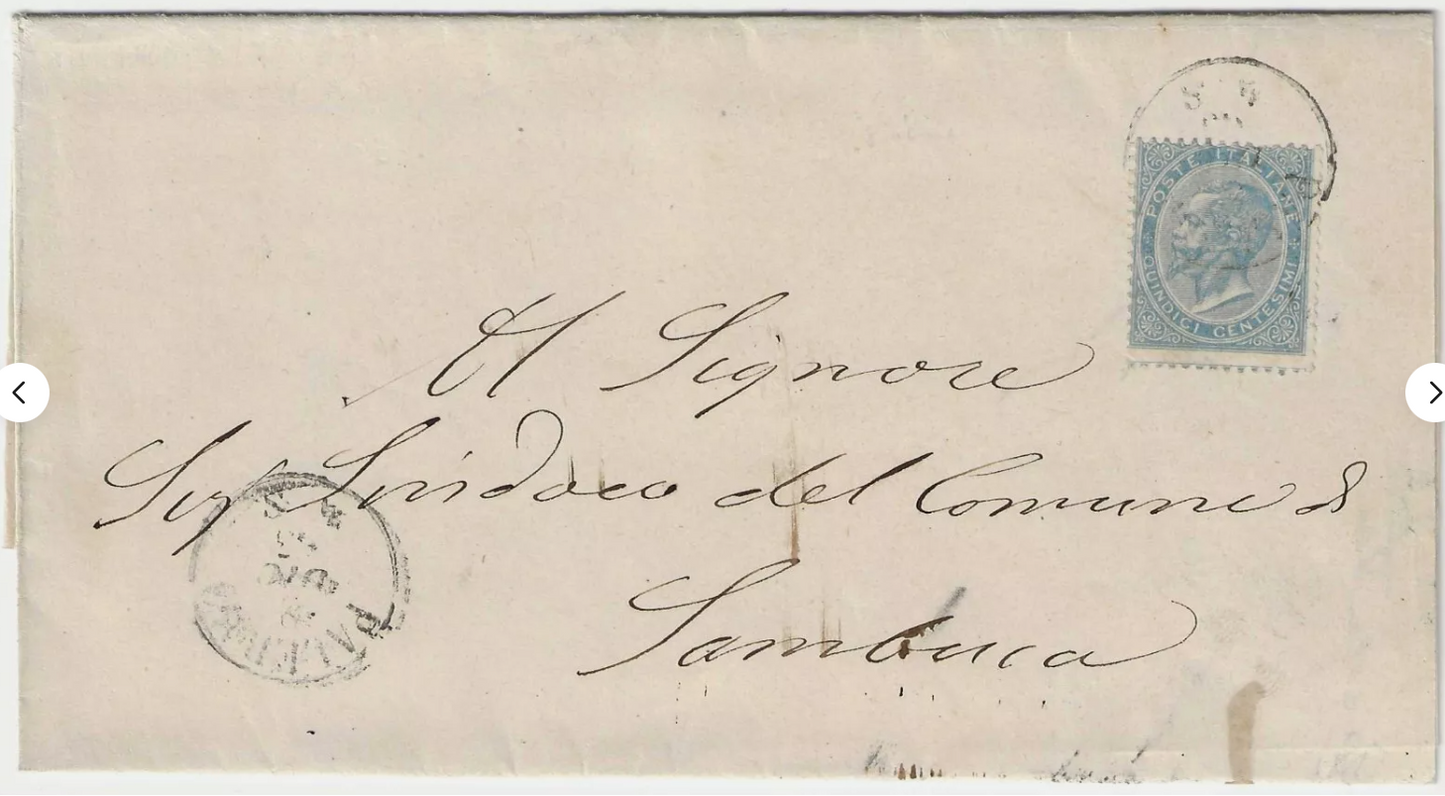 POSTE ITALIANE
QUINDICI CENTESIMI
Al Signore
Sig Sindaco del Comune di
Sambuca
PALERMO